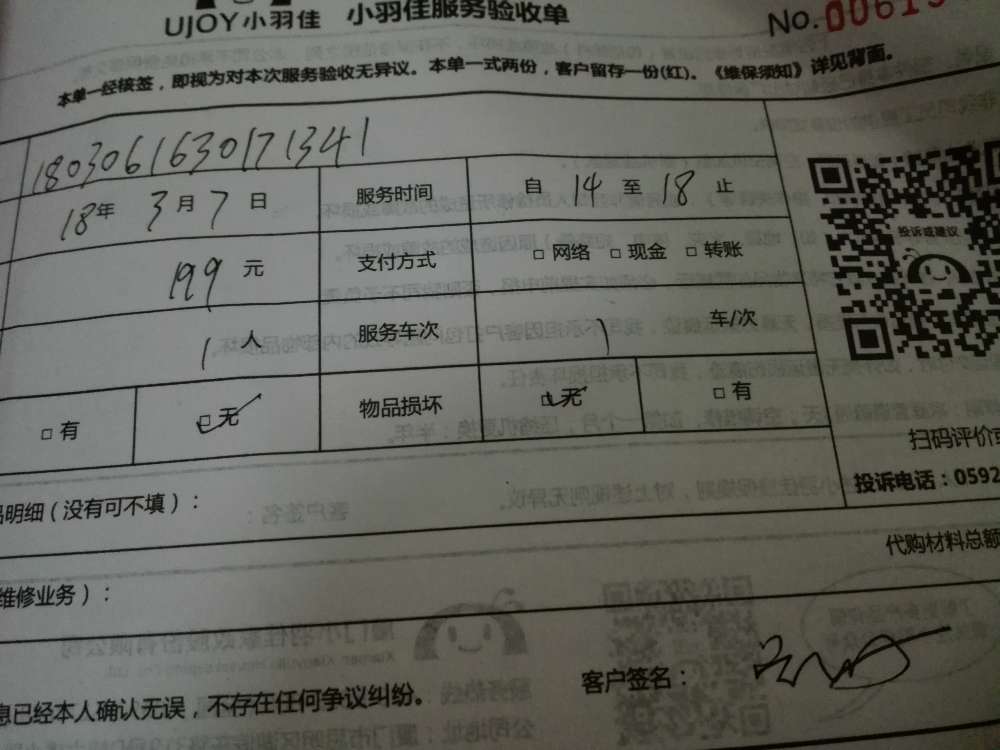 UJOY小羽佳 小羽佳服务验收单
No. 00619
本单一经核签，即视为对本次服务验收无异议。本单一式两份，客户留存一份(红)。《维保须知》详见背面。
1803061630171341
18年 3月 7日 服务时间 自 14 至 18 止
投诉或建议
199 元 支付方式 □ 网络 □ 现金 □ 转账
1 人 服务车次 1 车/次
□ 有 □ 无 物品损坏 □ 无 □ 有
扫码评价或
投诉电话：0592
明细（没有可不填）：
代购材料总额
维修业务）：
客户签名：
息已经本人确认无误，不存在任何争议纠纷。